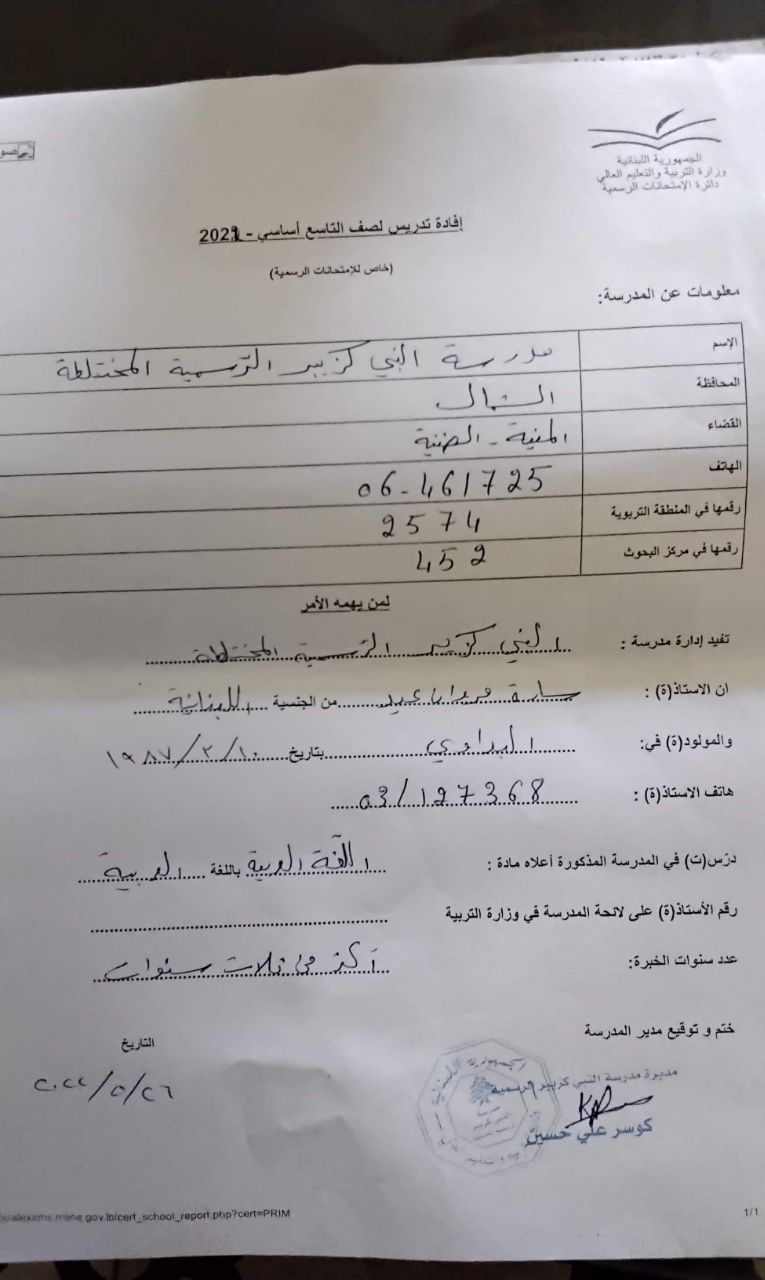 الجمهورية اللبنانية
وزارة التربية والتعليم العالي
دائرة الإمتحانات الرسمية
إفادة تدريس لصف التاسع أساسي - 2022
(خاص للإمتحانات الرسمية)
معلومات عن المدرسة:
الإسم مدرسة النبي كزيبر الرّسمية المختلطة
المحافظة الشمال
القضاء المنية - الضنية
الهاتف 06-461725
رقمها في المنطقة التربوية 2574
رقمها في مركز البحوث 452
لمن يهمه الأمر
تفيد إدارة مدرسة : النبي كزيبر الرسمية المختلطة
ان الاستاذ(ة) : سارة عيد من الجنسية اللبنانية
والمولود(ة) في: البداوي بتاريخ ١٩٨٧/٢/١٠
هاتف الاستاذ(ة) : 03/127368
درّس(ت) في المدرسة المذكورة أعلاه مادة : اللّغة العربية باللغة العربية
رقم الأستاذ(ة) على لائحة المدرسة في وزارة التربية
عدد سنوات الخبرة: أكثر من ثلاث سنوات
ختم و توقيع مدير المدرسة
التاريخ
٢٠٢٢/٥/٢٦
مديرة مدرسة النبي كزيبر الرسمية
كوسر علي حسين
cert_school_report.php?cert=PRIM
1/1